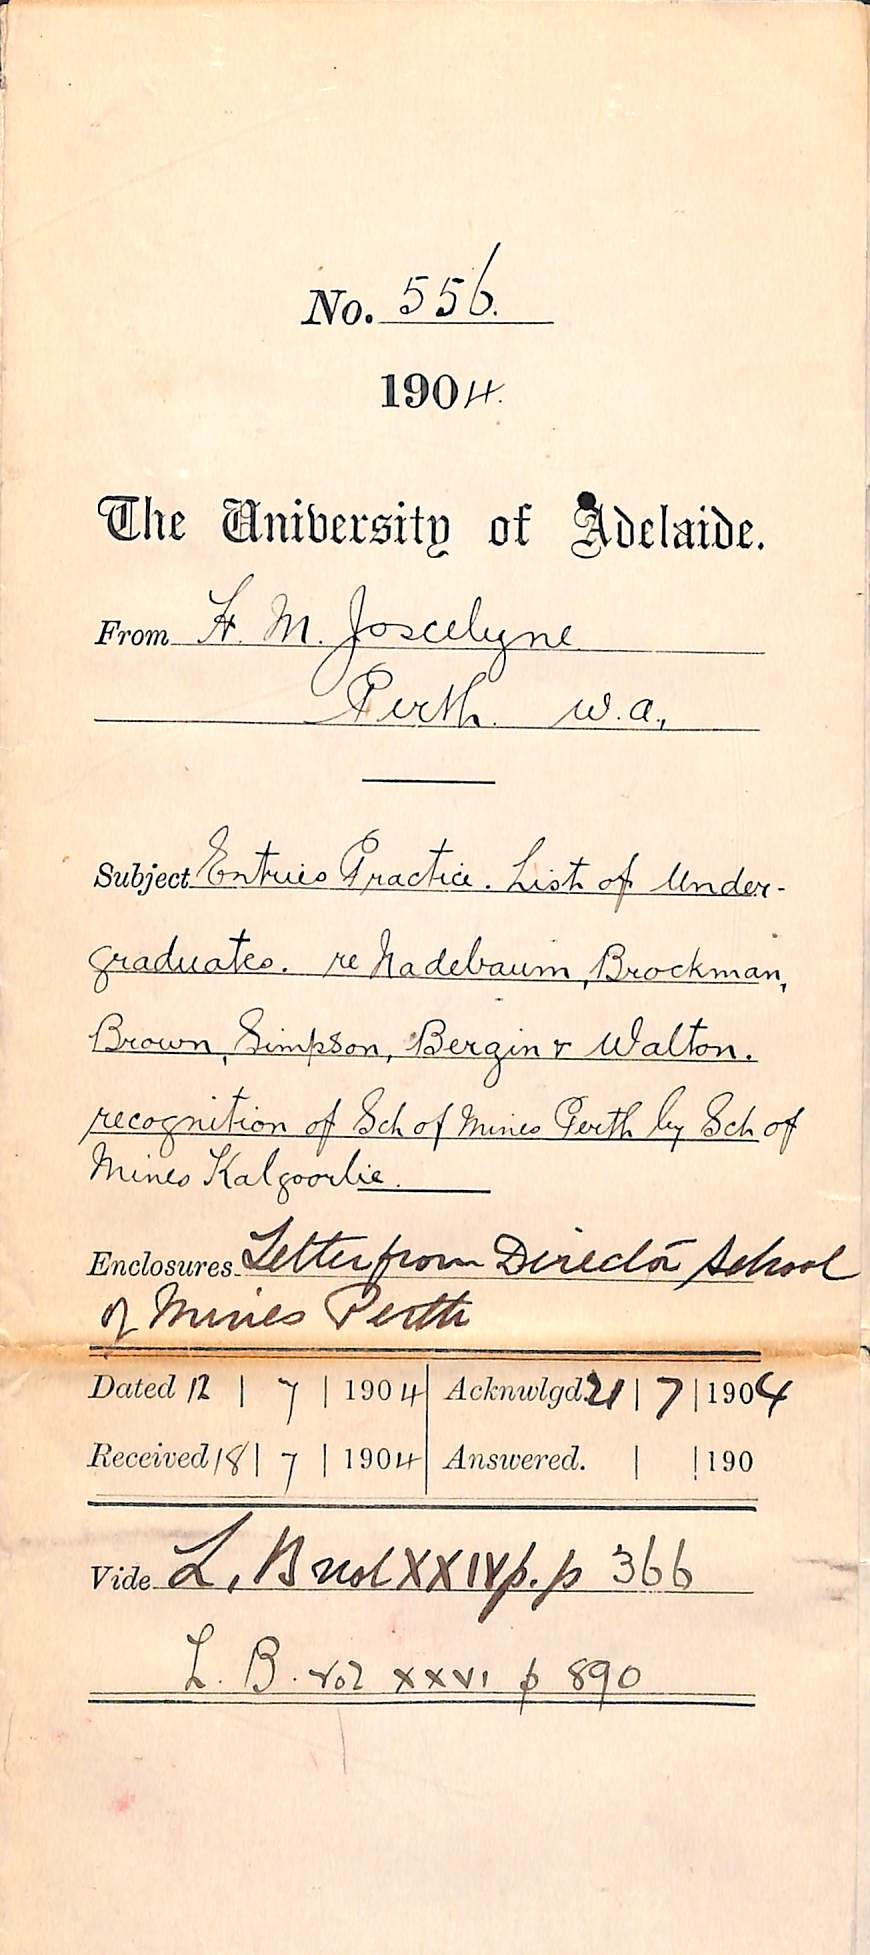 No. 556.
1904.
The University of Adelaide.
From H. M. Joscelyne
Perth. W.A.,
Subject Entries Practice. List of Under-
graduates. re Nadebaum, Brockman,
Brown, Simpson, Bergin & Walton.
recognition of Sch of Mines Perth by Sch of
Mines Kalgoorlie.
Enclosures Letter from Director School
of Mines Perth
Dated 12 | 7 | 1904 Acknwlgd. 21 | 7 | 1904
Received 18 | 7 | 1904 Answered. | | 190
Vide L, B vol XXIV p. p 366
L. B. vol XXVI p 890